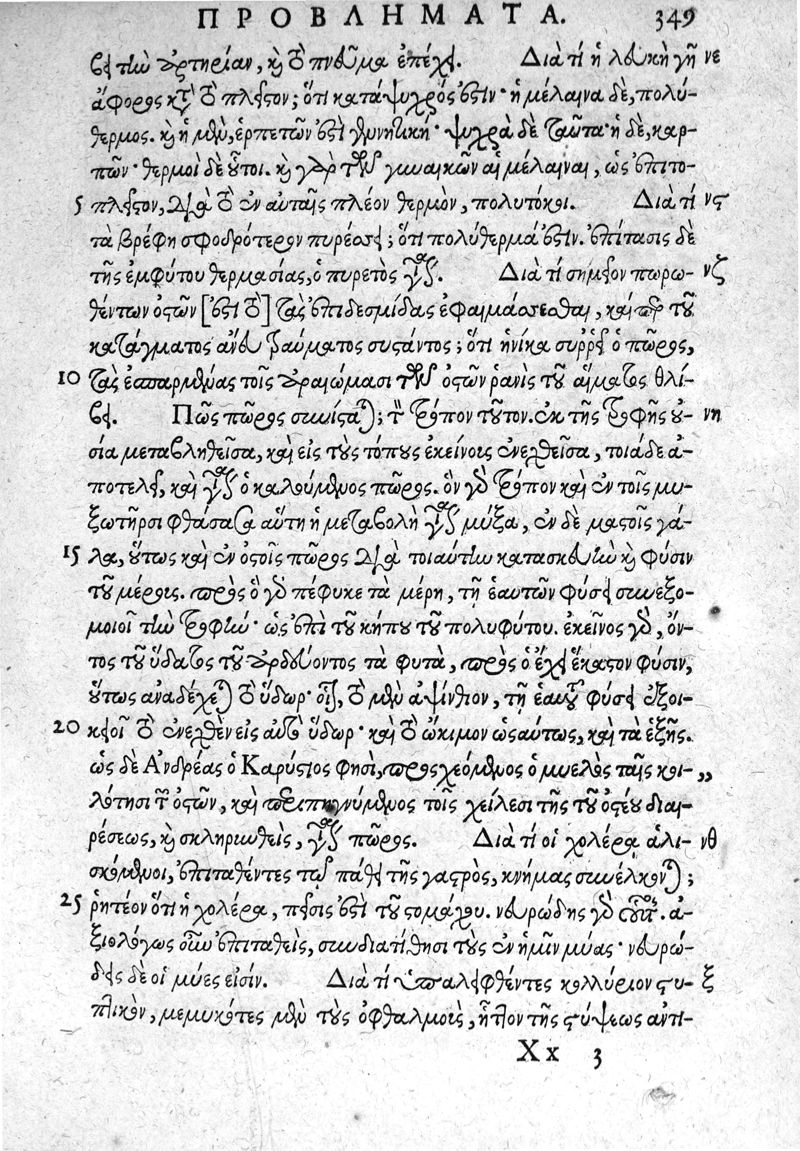 ΠΡΟΒΛΗΜΑΤΑ. 349
βει τὴν ἀρτηρίαν, καὶ τὸ πνεῦμα ἐπέχει. Διὰ τί ἡ λευκὴ γῆ νε
ἄφορος κατὰ τὸ πλεῖστον; ὅτι κατάψυχρός ἐστιν· ἡ μέλαινα δὲ, πολύ-
θερμος. καὶ ἡ μὲν, ἑρπετῶν ἐστὶ γεννητική· ψυχρὰ δὲ ταῦτα· ἡ δὲ, καρ-
πῶν· θερμοὶ δὲ οὗτοι. καὶ γὰρ τῶν γυναικῶν αἱ μέλαιναι, ὡς ἐπιτο-
5 πλεῖστον, διὰ τὸ ἐν αὐταῖς πλέον θερμὸν, πολυτόκοι. Διὰ τί νς
τὰ βρέφη σφοδρότερον πυρέσσει; ὅτι πολύθερμά ἐστιν. ἐπίτασις δὲ
τῆς ἐμφύτου θερμασίας, ὁ πυρετὸς γίνεται. Διὰ τί σημεῖον πωρω- νζ
θέντων ὀστῶν [ἐστὶ τὸ] τὰς ἐπιδεσμίδας ἐφαιμάσσεσθαι, καὶ περὶ τοῦ
κατάγματος ἄνευ τραύματος συστάντος; ὅτι ἡνίκα συρρεῖ ὁ πῶρος,
10 τὰς ἐσπαρμένας τοῖς ἀραιώμασι τῶν ὀστῶν ῥανὶς τοῦ αἵματος θλί-
βει. Πῶς πῶρος συνίσταται; τὸν τρόπον τοῦτον. ἐκ τῆς τροφῆς οὐ- νη
σία μεταβληθεῖσα, καὶ εἰς τοὺς τόπους ἐκείνους ἐνελθεῖσα, τοιάδε ἀ-
ποτελεῖ, καὶ γίνεται ὁ καλούμενος πῶρος. ὃν γὰρ τρόπον καὶ ἐν τοῖς μυ-
ξωτῆρσι φθάσασα αὕτη ἡ μεταβολὴ γίνεται μύξα, ἐν δὲ μαστοῖς γά-
15 λα, οὕτως καὶ ἐν ὀστοῖς πῶρος διὰ τοιαύτην κατασκευὴν καὶ φύσιν
τοῦ μέρους. πρὸς ὃ γὰρ πέφυκε τὰ μέρη, τῇ ἑαυτῶν φύσει συνεξο-
μοιοῖ τὴν τροφήν· ὡς ἐπὶ τοῦ κήπου τοῦ πολυφύτου. ἐκεῖνος γὰρ, ὄν-
τος τοῦ ὕδατος τοῦ ἀρδεύοντος τὰ φυτὰ, πρὸς ὃ ἔχει ἕκαστον φύσιν,
οὕτως ἀναδέχεται τὸ ὕδωρ· οἷον, τὸ μὲν ἀψίνθιον, τῇ ἑαυτοῦ φύσει ἐξοι-
20 κειοῖ τὸ ἐνελθὲν εἰς αὐτὸ ὕδωρ· καὶ τὸ ὤκιμον ὡσαύτως, καὶ τὰ ἑξῆς.
ὡς δὲ Ἀνδρέας ὁ Καρύστιος φησὶ, προσχεόμενος ὁ μυελὸς ταῖς κοι- „
λότησι τῶν ὀστῶν, καὶ περιπηγνύμενος τοῖς χείλεσι τῆς τοῦ ὀστέου διαι-
ρέσεως, καὶ σκληρυνθεὶς, γίνεται πῶρος. Διὰ τί οἱ χολέρᾳ ἁλι- νθ
σκόμενοι, ἐπιταθέντες τῷ πάθει τῆς γαστρὸς, κνήμας συνέλκονται;
25 ῥητέον ὅτι ἡ χολέρα, πεῖσις ἐστὶ τοῦ στομάχου. νευρώδης γὰρ οὗτος. ἀ-
ξιολόγως οὖν ἐπιταθεὶς, συνδιατίθησι τοὺς ἐν ἡμῖν μύας· νευρώ-
δεις δὲ οἱ μύες εἰσίν. Διὰ τί ὑπαλειφθέντες κολλύριον στυ- ξ
πτικὸν, μεμυκότες μὲν τοὺς ὀφθαλμοὺς, ἧττον τῆς στύψεως ἀντι-
Xx 3